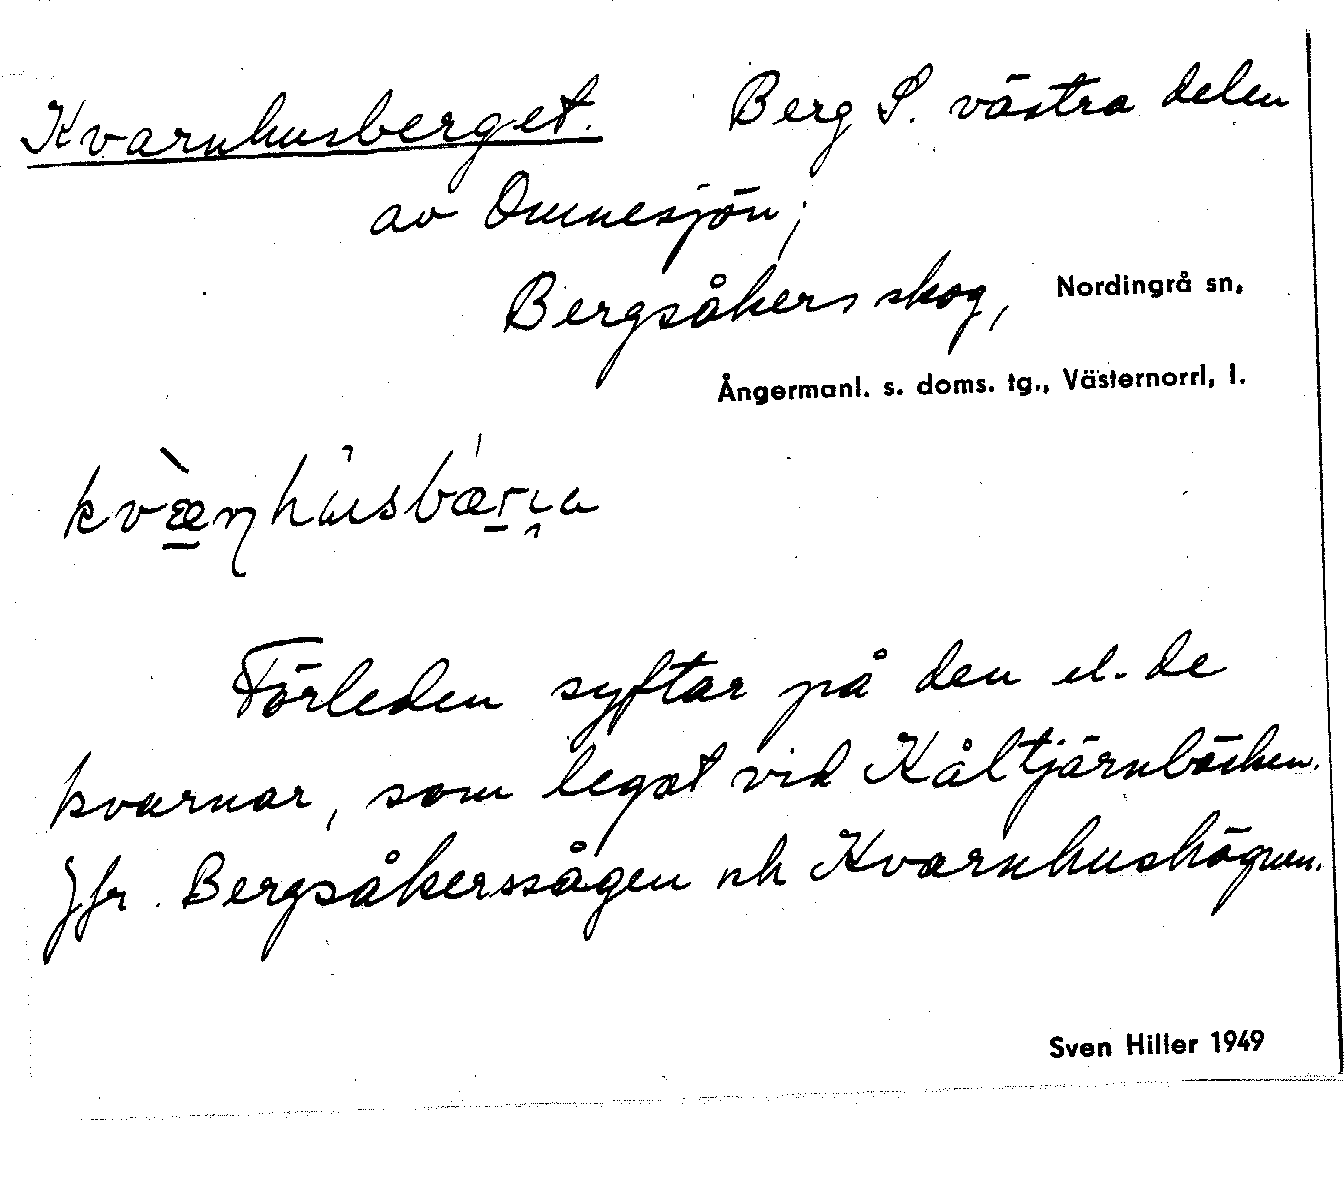 Kvarnhusberget. Berg S. västra delen
av Omnesjön;
Bergsåkers skog, Nordingrå sn,
Ångermanl. s. doms. tg., Västernorrl, l.
Förleden syftar på den el. de
kvarnar, som legat vid Kåltjärnbäcken.
Jfr. Bergsåkerssågen och Kvarnhushögen.
Sven Hiller 1949